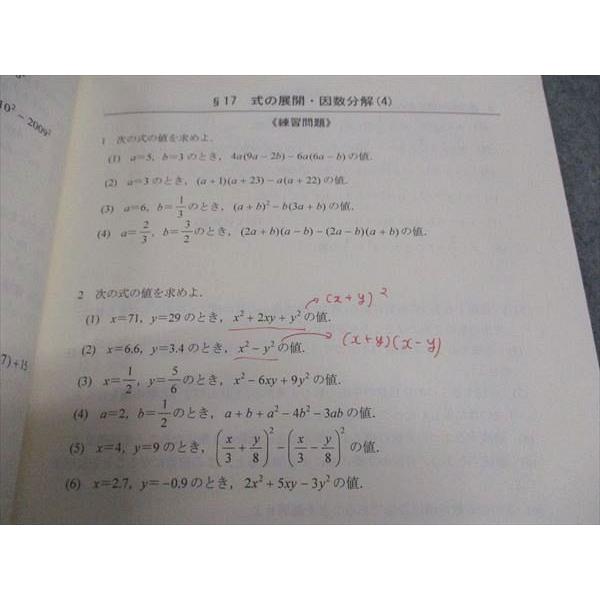 10² - 2009²
7)+15
§17 式の展開・因数分解(4)
《練習問題》
1 次の式の値を求めよ.
(1) a=5, b=3のとき, 4a(9a-2b)-6a(6a-b)の値.
(2) a=3のとき, (a+1)(a+23)-a(a+22)の値.
(3) a=6, b=1/3のとき, (a+b)²-b(3a+b)の値.
(4) a=2/3, b=3/2のとき, (2a+b)(a-b)-(2a-b)(a+b)の値.
2 次の式の値を求めよ.
(x+y)²
(1) x=71, y=29のとき, x²+2xy+y²の値.
(2) x=6.6, y=3.4のとき, x²-y²の値. (x+y)(x-y)
(3) x=1/2, y=5/6のとき, x²-6xy+9y²の値.
(4) a=2, b=1/2のとき, a+b+a²-4b²-3abの値.
(5) x=4, y=9のとき, (x/3+y/8)²-(x/3-y/8)²の値.
(6) x=2.7, y=-0.9のとき, 2x²+5xy-3y²の値.